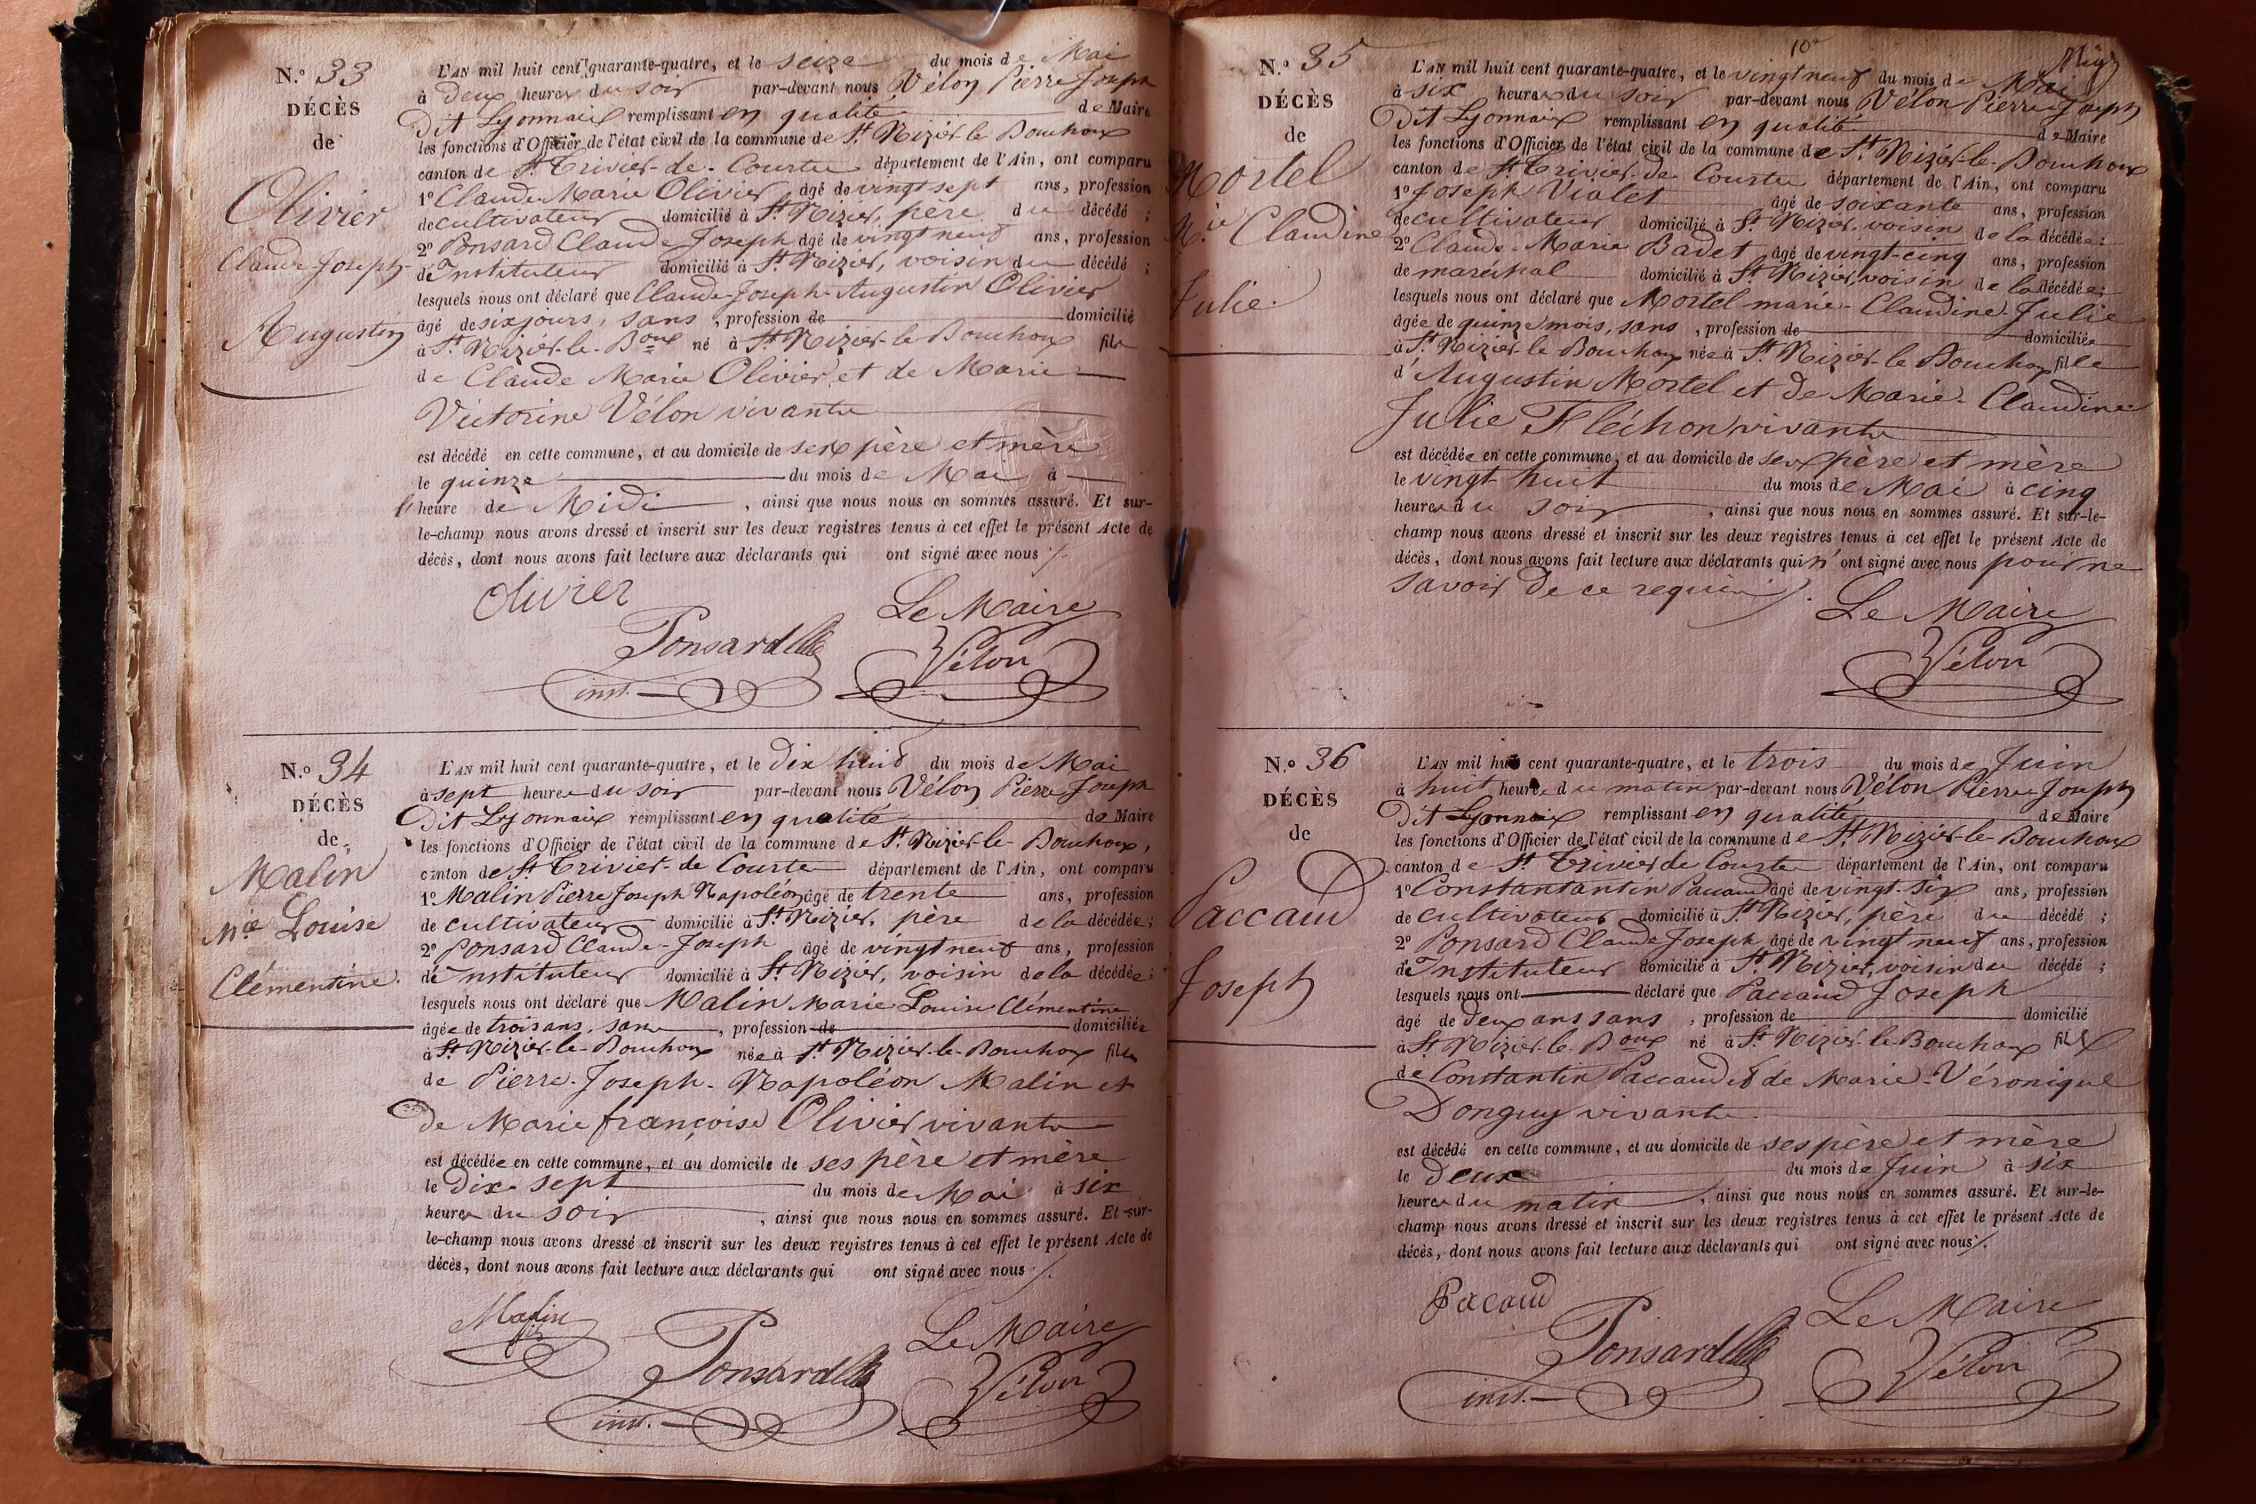 N.º 33
DÉCÈS
de
Olivier
Claude Joseph
Augustin
L'AN mil huit cent quarante-quatre, et le seize du mois de Mai
à deux heures du soir par-devant nous Vélon Pierre Joseph
Dit Lyonnais remplissant en qualité de Maire
les fonctions d'Officier de l'état civil de la commune de St. Nizier le Bouchoux
canton de St. Trivier-de-Courtes département de l'Ain, ont comparu
1º Claude Marie Olivier âgé de vingt sept ans, profession
de cultivateur domicilié à St. Nizier, père du décédé ;
2º Ponsard Claude Joseph âgé de vingt neuf ans, profession
de Instituteur domicilié à St. Nizier, voisin du décédé ;
lesquels nous ont déclaré que Claude-Joseph-Augustin Olivier
âgé de six jours, sans , profession de domicilié
à St. Nizier-le-Boux né à St. Nizier-le Bouchoux fils
de Claude Marie Olivier et de Marie
Victorine Vélon vivants
est décédé en cette commune, et au domicile de ses père et mère
le quinze du mois de Mai à
l'heure de Midi , ainsi que nous nous en sommes assuré. Et sur-
le-champ nous avons dressé et inscrit sur les deux registres tenus à cet effet le présent Acte de
décès, dont nous avons fait lecture aux déclarants qui ont signé avec nous ./.
Olivier
Le Maire
Ponsard
Vélon
inst.
N.º 34
DÉCÈS
de
Malin
Mie Louise
Clémentine.
L'AN mil huit cent quarante-quatre, et le dix huit du mois de Mai
à sept heures du soir par-devant nous Vélon Pierre Joseph
Dit Lyonnais remplissant en qualité de Maire
les fonctions d'Officier de l'état civil de la commune de St. Nizier-le-Bouchoux,
canton de St. Trivier-de Courtes département de l'Ain, ont comparu
1º Malin Pierre Joseph Napoléon âgé de trente ans, profession
de cultivateur domicilié à St. Nizier, père de la décédée ;
2º Ponsard Claude-Joseph âgé de vingt neuf ans, profession
de Instituteur domicilié à St. Nizier, voisin de la décédée ;
lesquels nous ont déclaré que Malin Marie Louise Clémentine
âgée de trois ans, sans , profession de domiciliée
à St. Nizier-le-Bouchoux née à St. Nizier-le-Bouchoux fille
de Pierre-Joseph-Napoléon Malin et
de Marie françoise Olivier vivants
est décédée en cette commune, et au domicile de ses père et mère
le Dix-sept du mois de Mai à six
heures du soir , ainsi que nous nous en sommes assuré. Et sur-
le-champ nous avons dressé et inscrit sur les deux registres tenus à cet effet le présent Acte de
décès, dont nous avons fait lecture aux déclarants qui ont signé avec nous ./.
Malin
Le Maire
Ponsard
Vélon
inst.
10e
N.º 35
DÉCÈS
de
Mortel
M.ie Claudine
Julie.
L'AN mil huit cent quarante-quatre, et le vingt neuf du mois de Mai
à six heures du soir par-devant nous Vélon Pierre Joseph
Dit Lyonnais remplissant en qualité de Maire
les fonctions d'Officier de l'état civil de la commune de St. Nizier-le-Bouchoux
canton de St. Trivier-de Courtes département de l'Ain, ont comparu
1º Joseph Vialet âgé de soixante ans, profession
de cultivateur domicilié à St. Nizier, voisin de la décédée ;
2º Claude-Marie Badet âgé de vingt-cinq ans, profession
de maréchal domicilié à St. Nizier, voisin de la décédée ;
lesquels nous ont déclaré que Mortel marie-Claudine Julie
âgée de quinze mois, sans , profession de domiciliée
à St. Nizier-le Bouchoux née à St. Nizier-le Bouchoux fille
d'Augustin Mortel et de Marie-Claudine
Julie Fléchon vivants
est décédée en cette commune, et au domicile de ses père et mère
le vingt huit du mois de Mai à cinq
heures du soir , ainsi que nous nous en sommes assuré. Et sur-le-
champ nous avons dressé et inscrit sur les deux registres tenus à cet effet le présent Acte de
décès, dont nous avons fait lecture aux déclarants qui n'ont signé avec nous pour ne
savoir de ce requis ./.
Le Maire
Vélon
N.º 36
DÉCÈS
de
Paccaud
Joseph
L'AN mil huit cent quarante-quatre, et le trois du mois de Juin
à huit heures du matin par-devant nous Vélon Pierre Joseph
Dit Lyonnais remplissant en qualité de Maire
les fonctions d'Officier de l'état civil de la commune de St. Nizier-le-Bouchoux
canton de St. Trivier de Courtes département de l'Ain, ont comparu
1º Constantantin Paccaud âgé de vingt-six ans, profession
de cultivateur domicilié à St. Nizier, père du décédé ;
2º Ponsard Claude Joseph âgé de vingt neuf ans, profession
d'Instituteur domicilié à St. Nizier, voisin du décédé ;
lesquels nous ont déclaré que Paccaud Joseph
âgé de deux ans sans , profession de domicilié
à St. Nizier-le-Boux né à St. Nizier-le Bouchoux fils
de Constantin Paccaud et de Marie-Véronique
Donguy vivants.
est décédé en cette commune, et au domicile de ses père et mère
le Deux du mois de Juin à six
heures du matin , ainsi que nous nous en sommes assuré. Et sur-le-
champ nous avons dressé et inscrit sur les deux registres tenus à cet effet le présent Acte de
décès, dont nous avons fait lecture aux déclarants qui ont signé avec nous ./.
Pacaud
Le Maire
Ponsard
Vélon
inst.